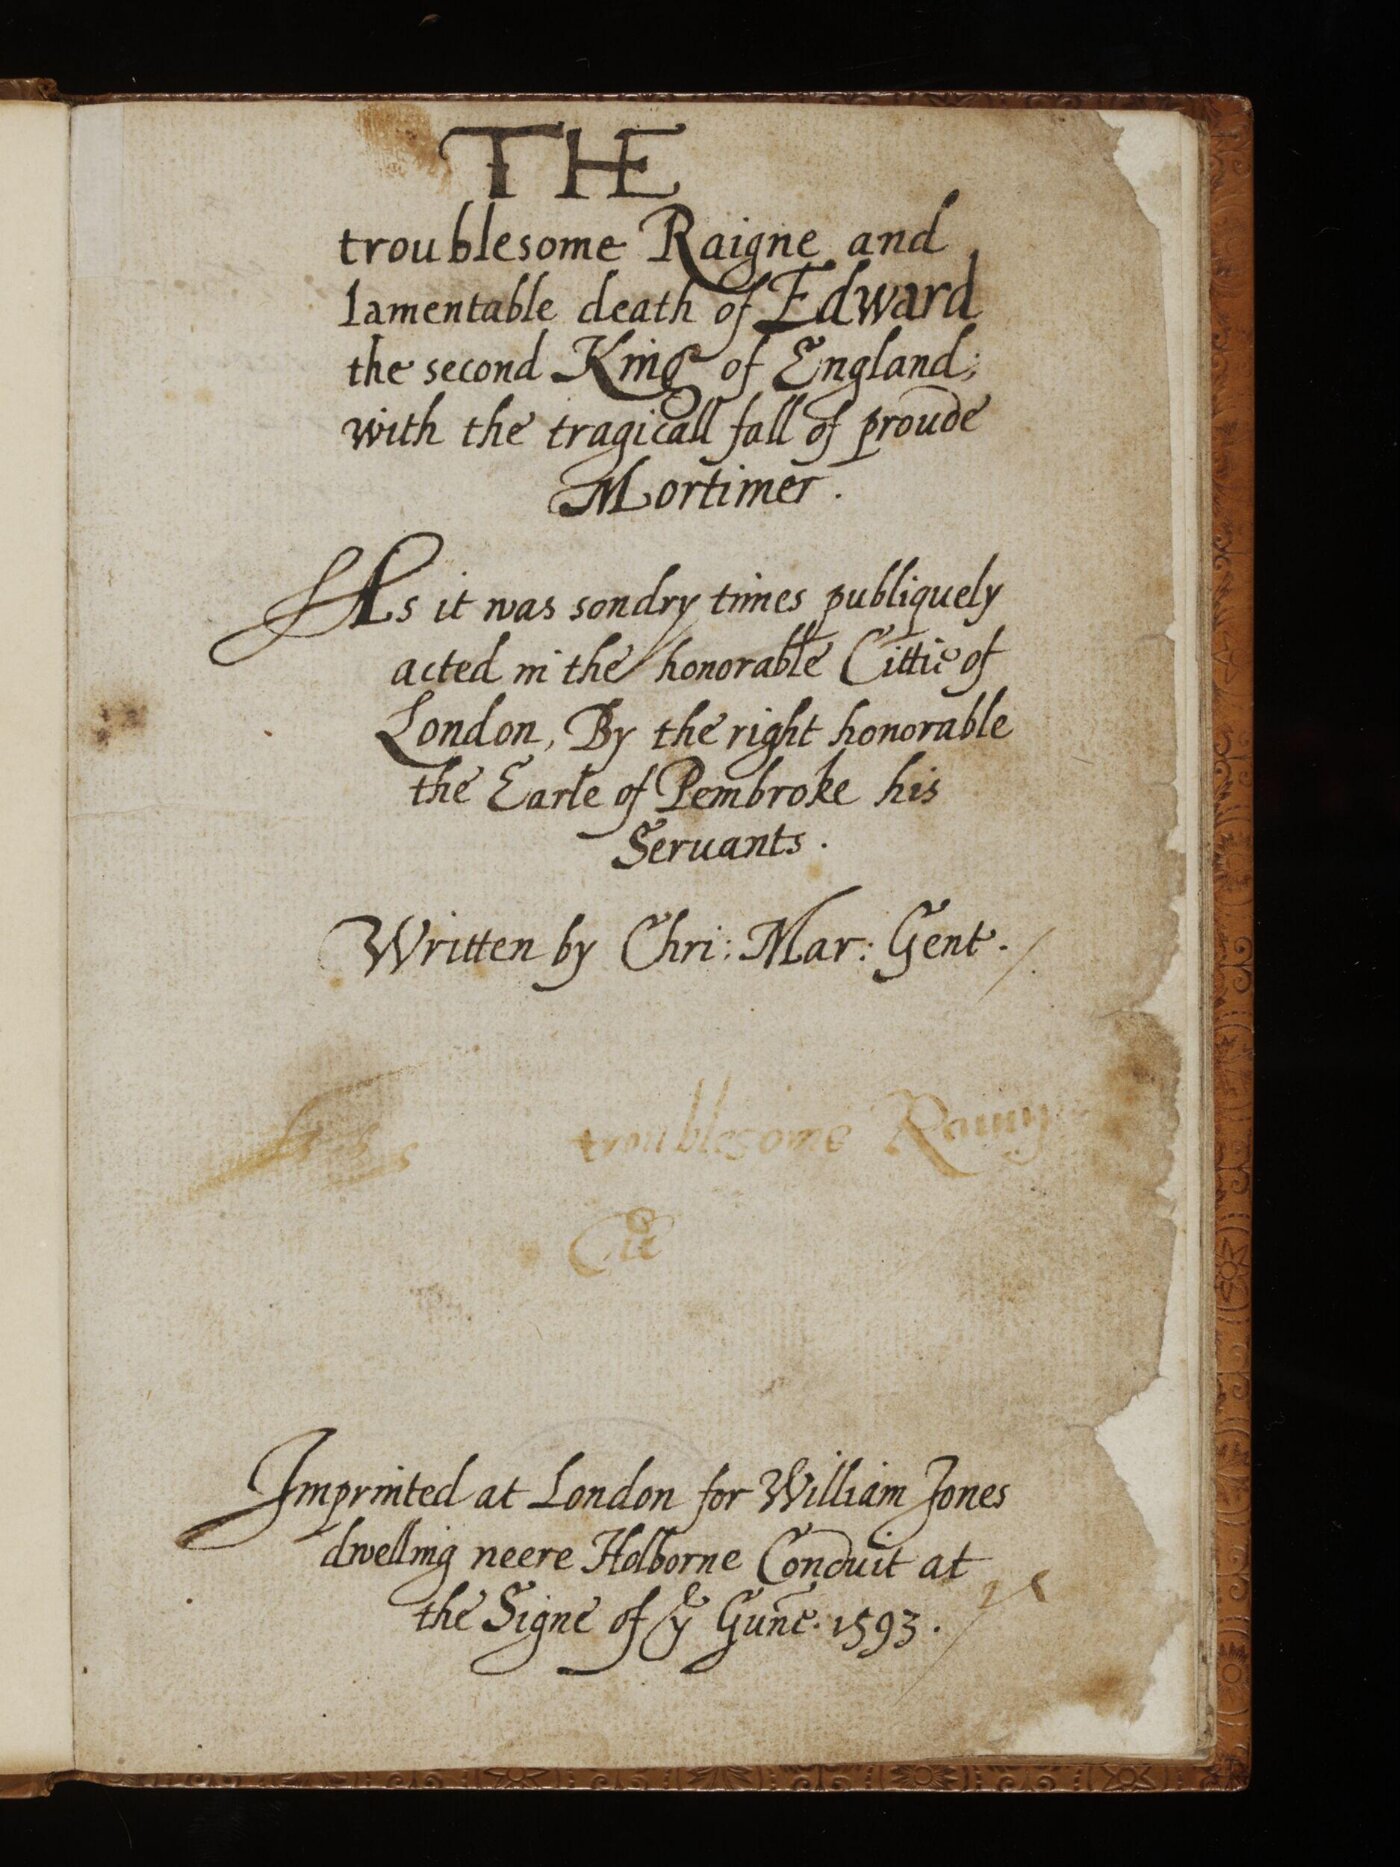 THE
troublesome Raigne and
lamentable death of Edward
the second King of England;
with the tragicall fall of proude
Mortimer.
As it was sondry times publiquely
acted in the honorable Cittie of
London, By the right honorable
the Earle of Pembroke his
Seruants.
Written by Chri: Mar: Gent.
troublesome
Imprinted at London for William Jones
dwelling neere Holborne Conduit at
the Signe of ye Gune. 1593.